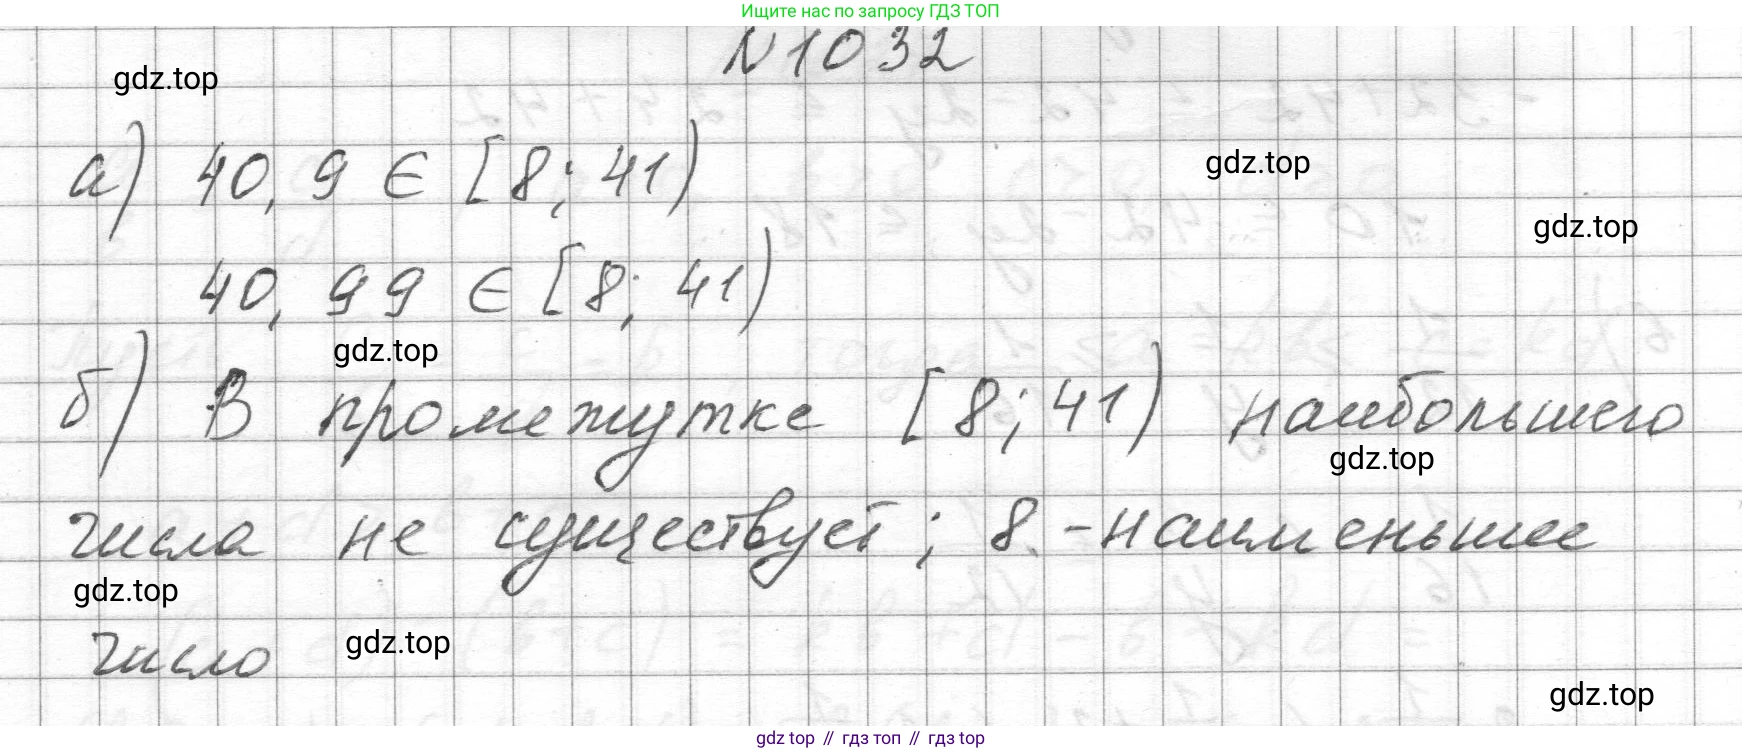 Ищите нас по запросу ГДЗ ТОП
N 1032
gdz.top
а) 40,9 ∈ [8; 41)
gdz.top
gdz.top
40,99 ∈ [8; 41)
gdz.top
б) В промежутке [8; 41) наибольшего
gdz.top
числа не существует; 8 - наименьшее
gdz.top
число
gdz.top
gdz.top
gdz top // гдз топ // гдз top